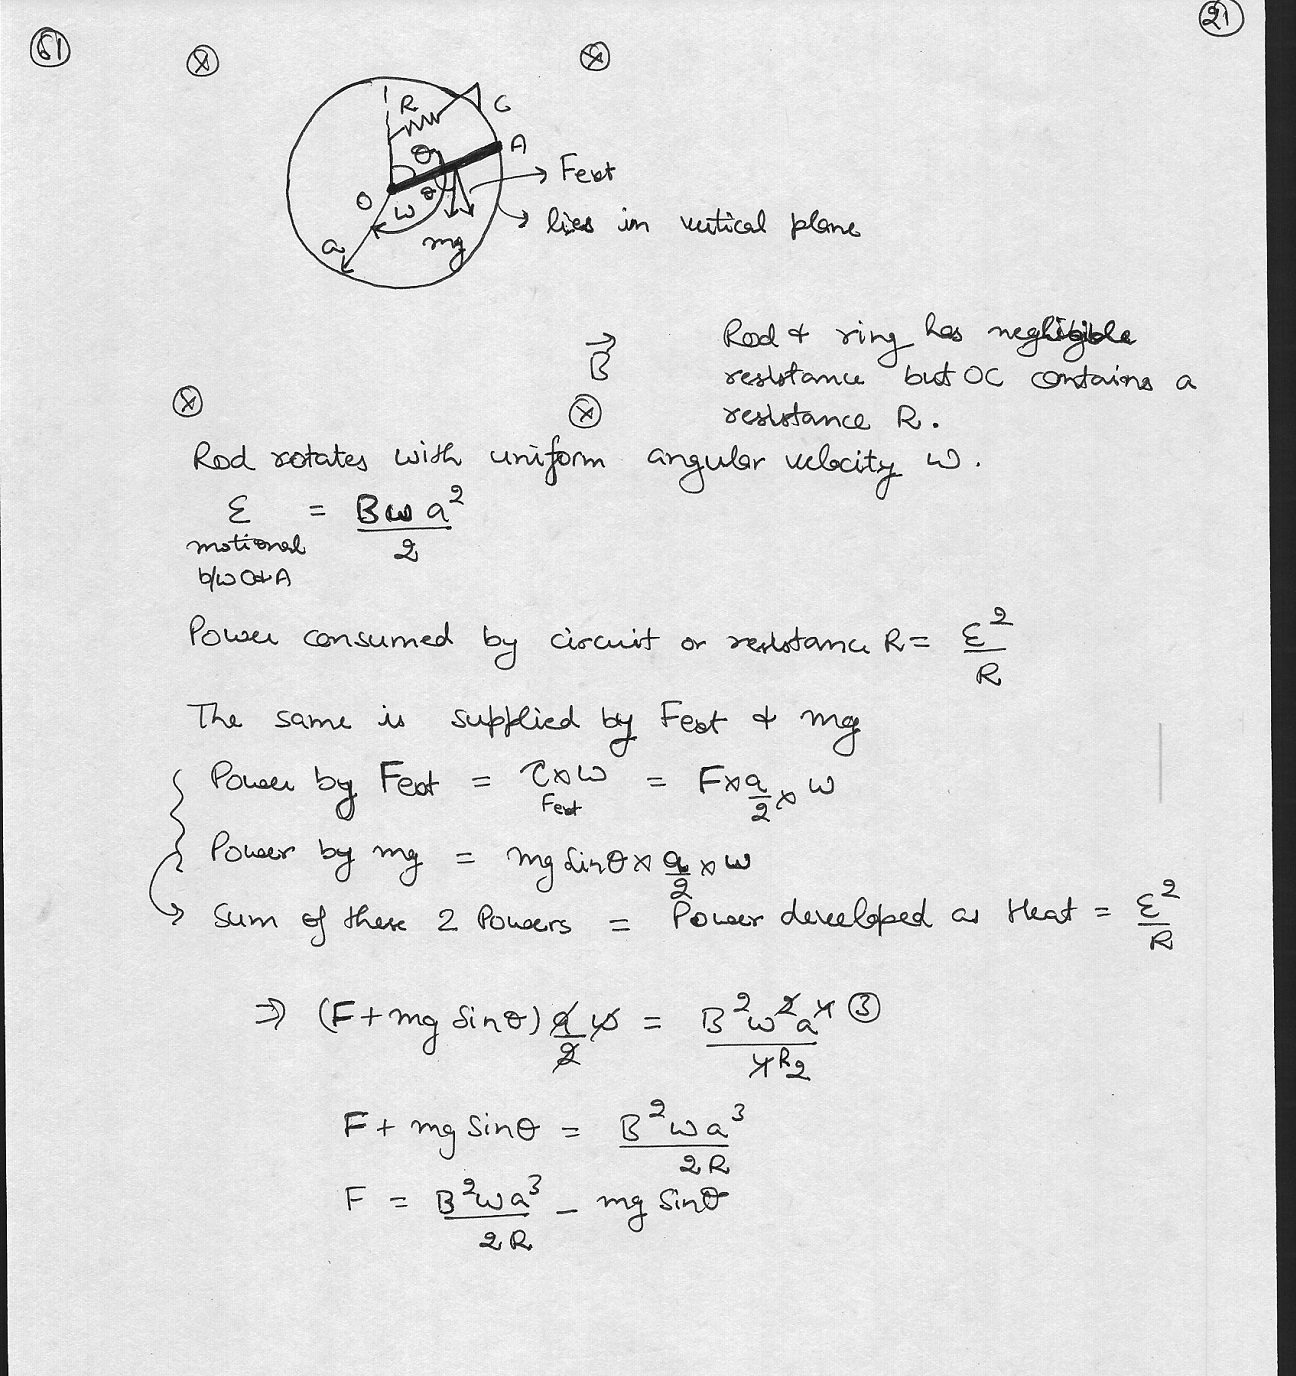 61
21
R
C
θ
A
Fext
O
θ
ω
lies in vertical plane
a
mg
B
Rod & ring has negligible
resistance but OC contains a
resistance R.
Rod rotates with uniform angular velocity ω.
ε = Bωa²/2
motional
b/w O & A
Power consumed by circuit or resistance R = ε²/R
The same is supplied by Fext & mg
Power by Fext = τ × ω = F × a/2 × ω
Fext
Power by mg = mg Sinθ × a/2 × ω
Sum of these 2 Powers = Power developed as Heat = ε²/R
⇒ (F + mg Sinθ) a/2 ω = B²ω²a⁴ ③/4R 2
F + mg Sinθ = B²ωa³/2R
F = B²ωa³/2R - mg Sinθ